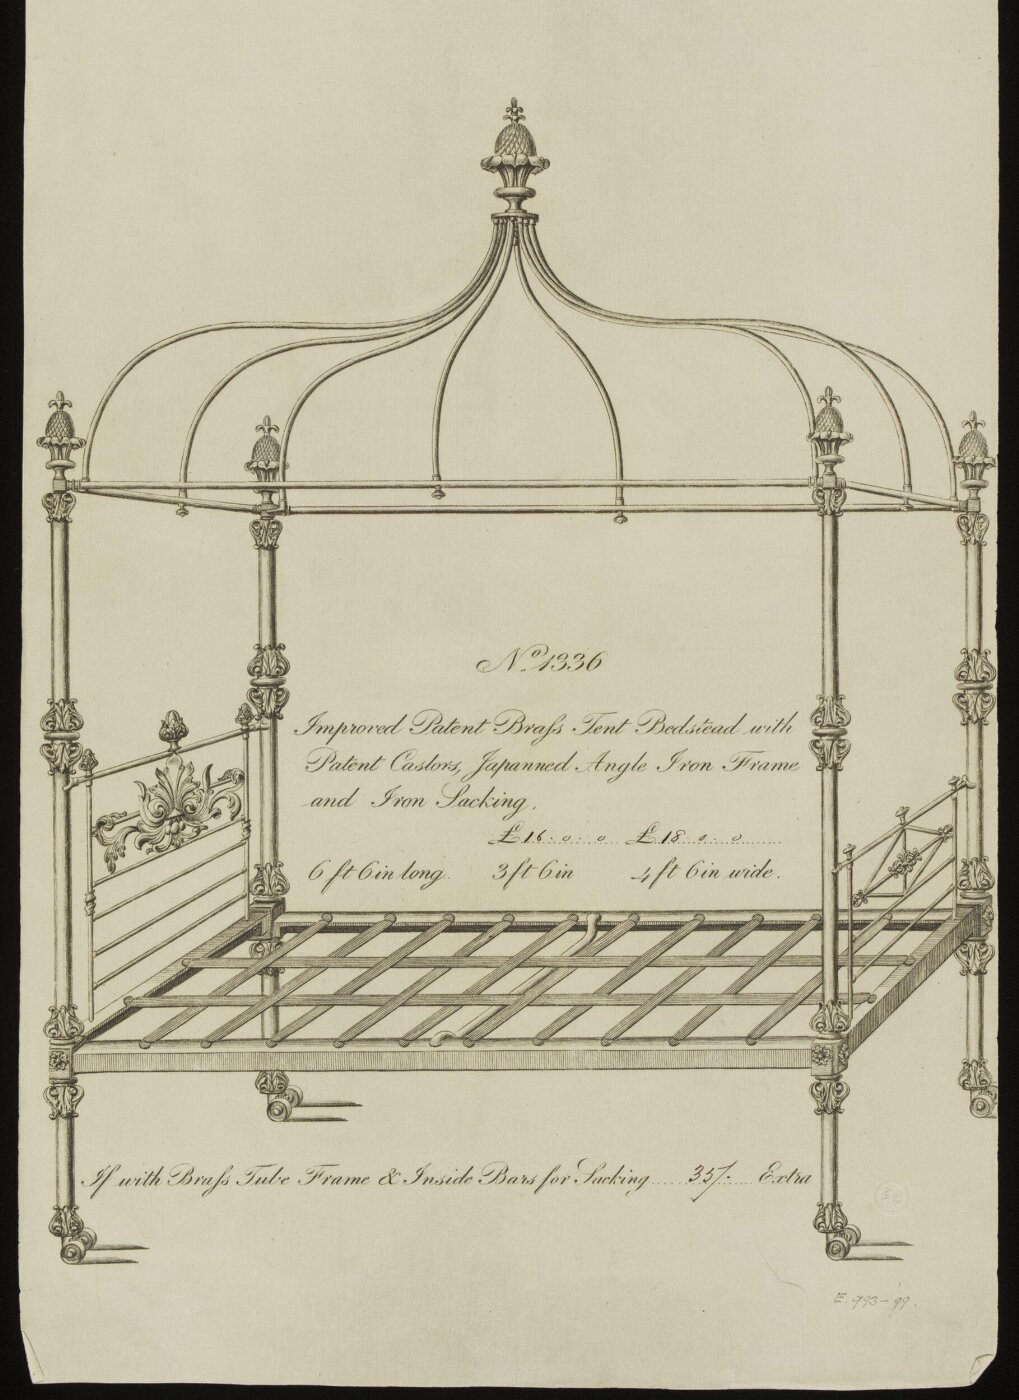 Nº 1336
Improved Patent Braſs Tent Bedstead with
Patent Castors, Japanned Angle Iron Frame
and Iron Sacking.
£16..o..o £18..o..o
6 ft 6 in long. 3 ft 6 in 4 ft 6 in wide.
If with Braſs Tube Frame & Inside Bars for Sacking.....35/-.....Extra
E. 993-'99.